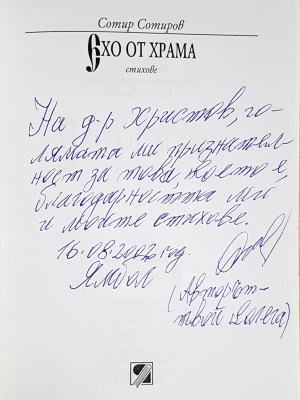 Сотир Сотиров
ЕХО ОТ ХРАМА
стихове
На д-р Христов, го-
лямата ми признател-
ност за това, което е,
благодарността ми
и моите стихове.
16.08.2002 год.
Ямбол
(Авторът-
твой колега)